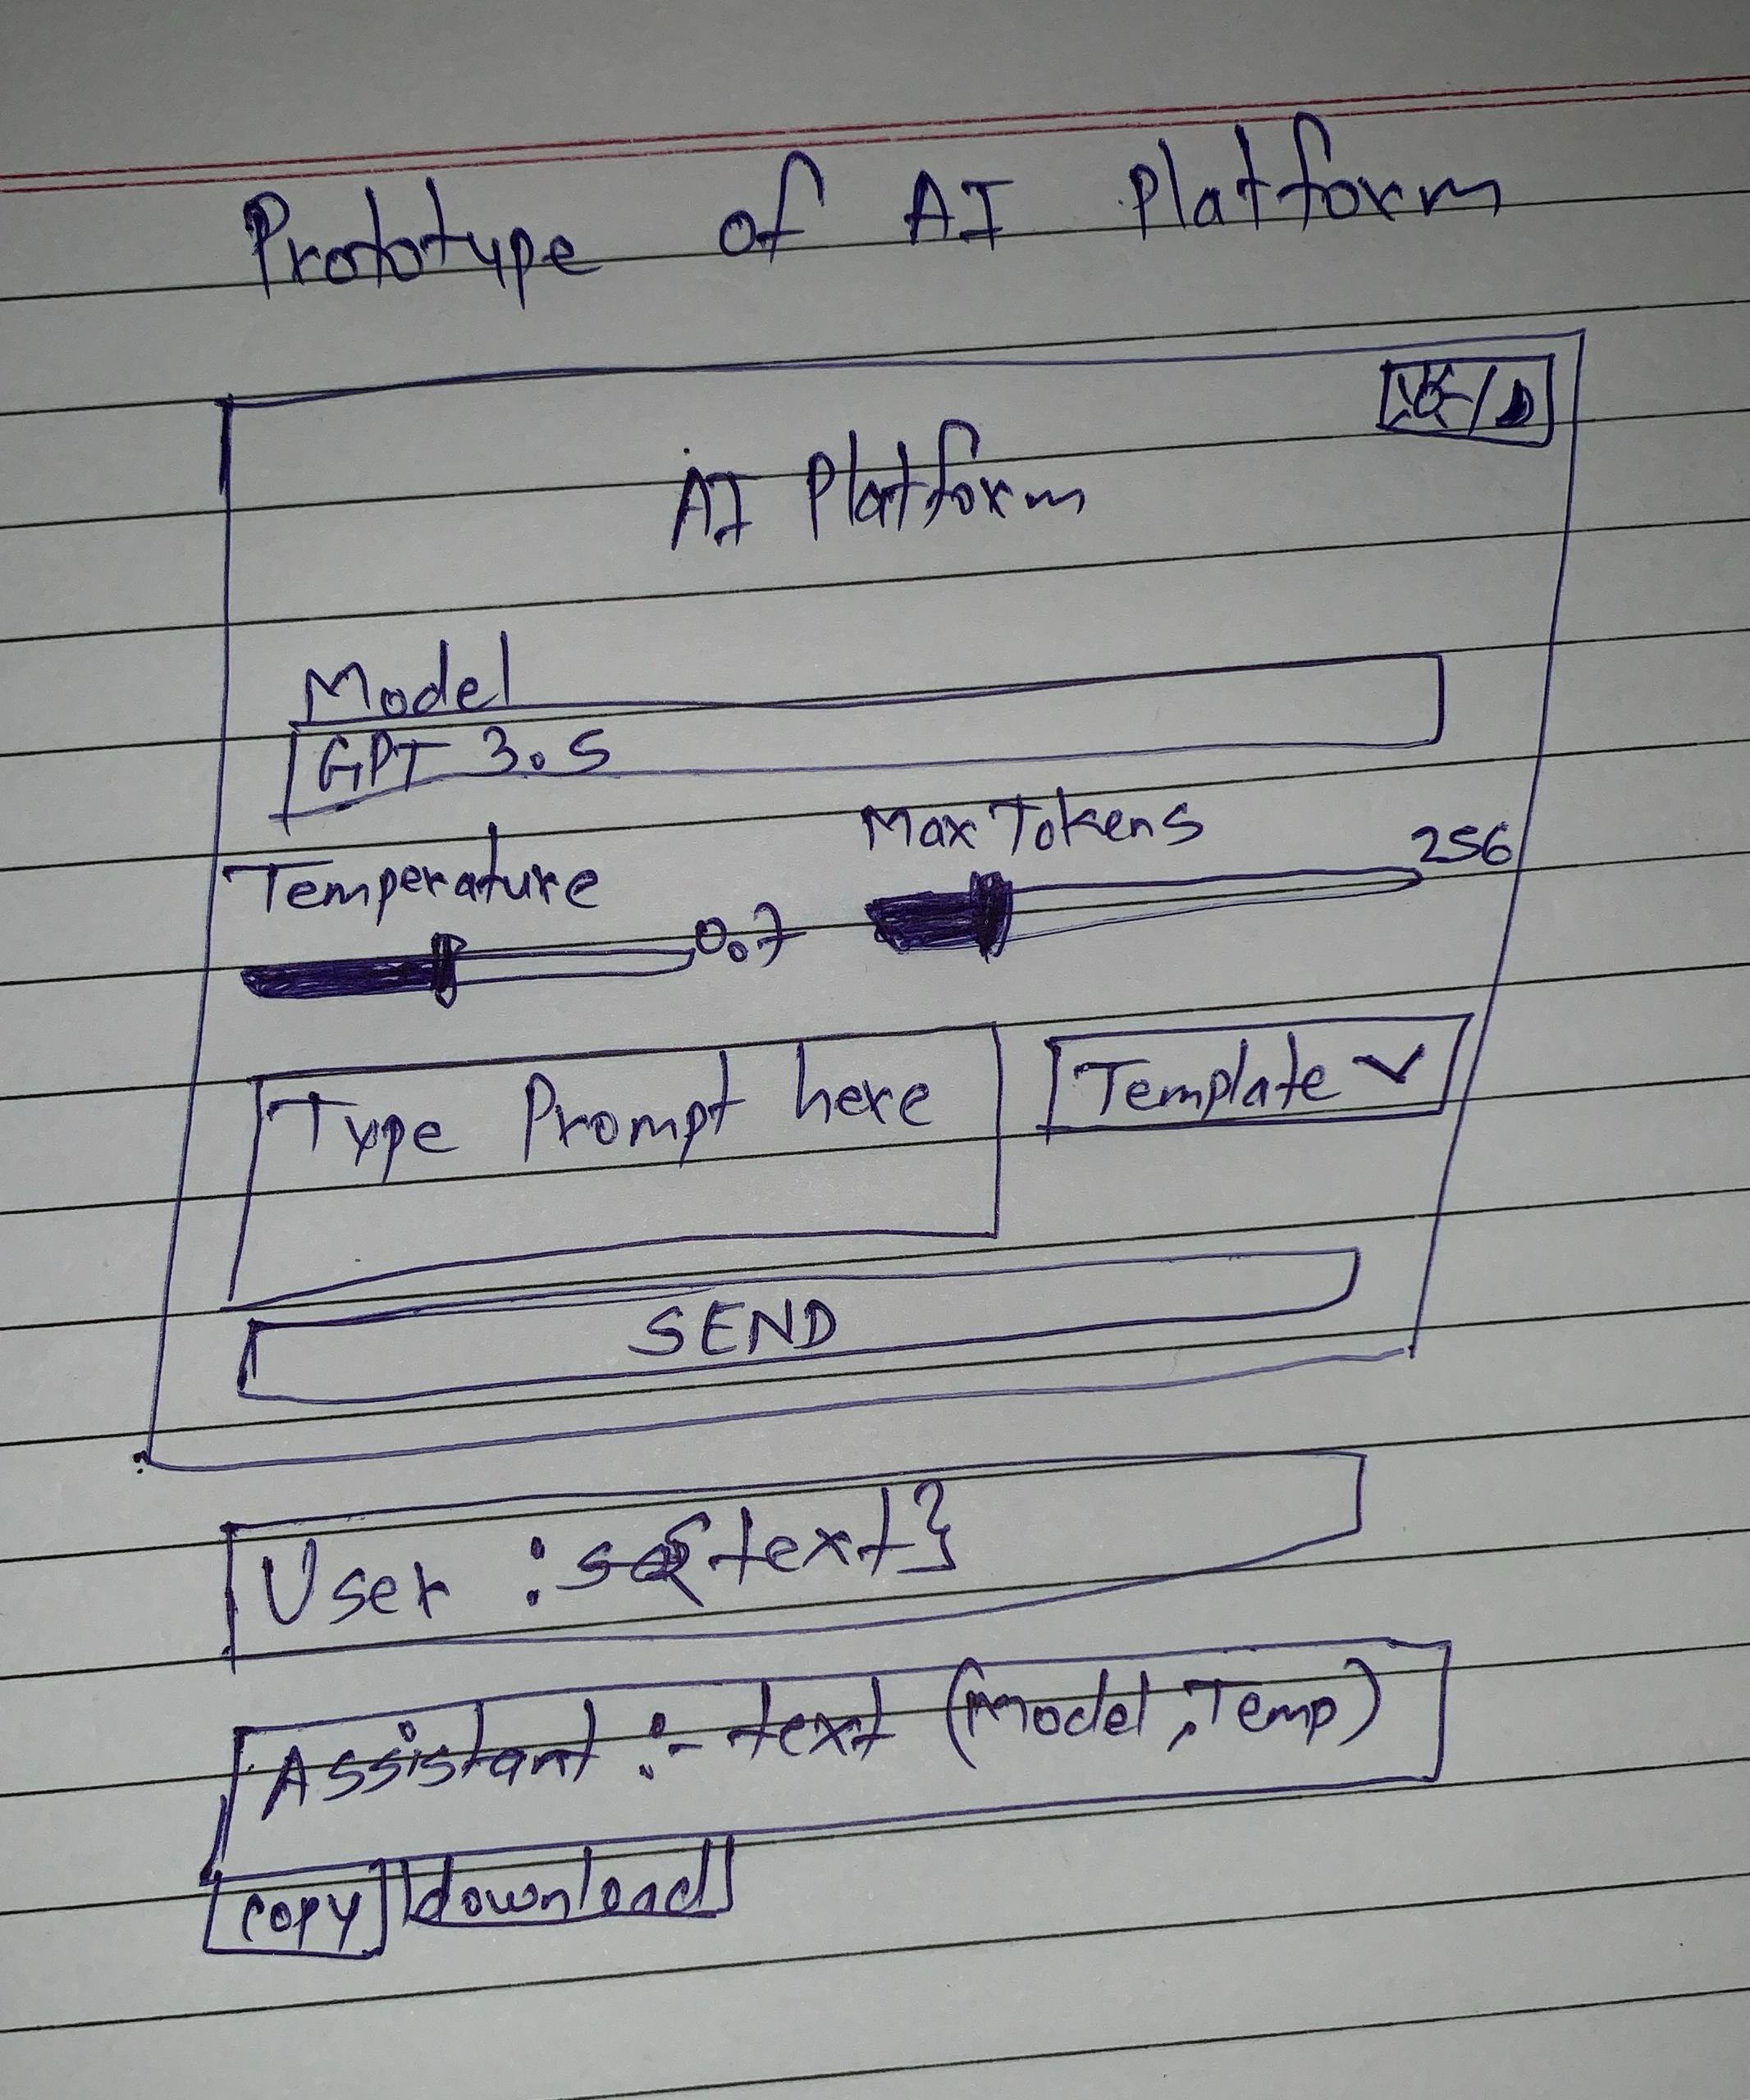 Prototype of AI Platform
AI Platform
Model
GPT 3.5
Temperature 0.7
Max Tokens 256
Type Prompt here
Template
SEND
User : {text}
Assistant :- text (Model, Temp)
copy download